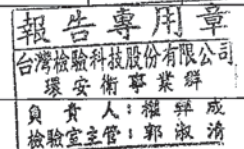 報告專用章
台灣檢驗科技股份有限公司
環安衛事業群
負責人：楊 成
檢驗室主管：郭淑清